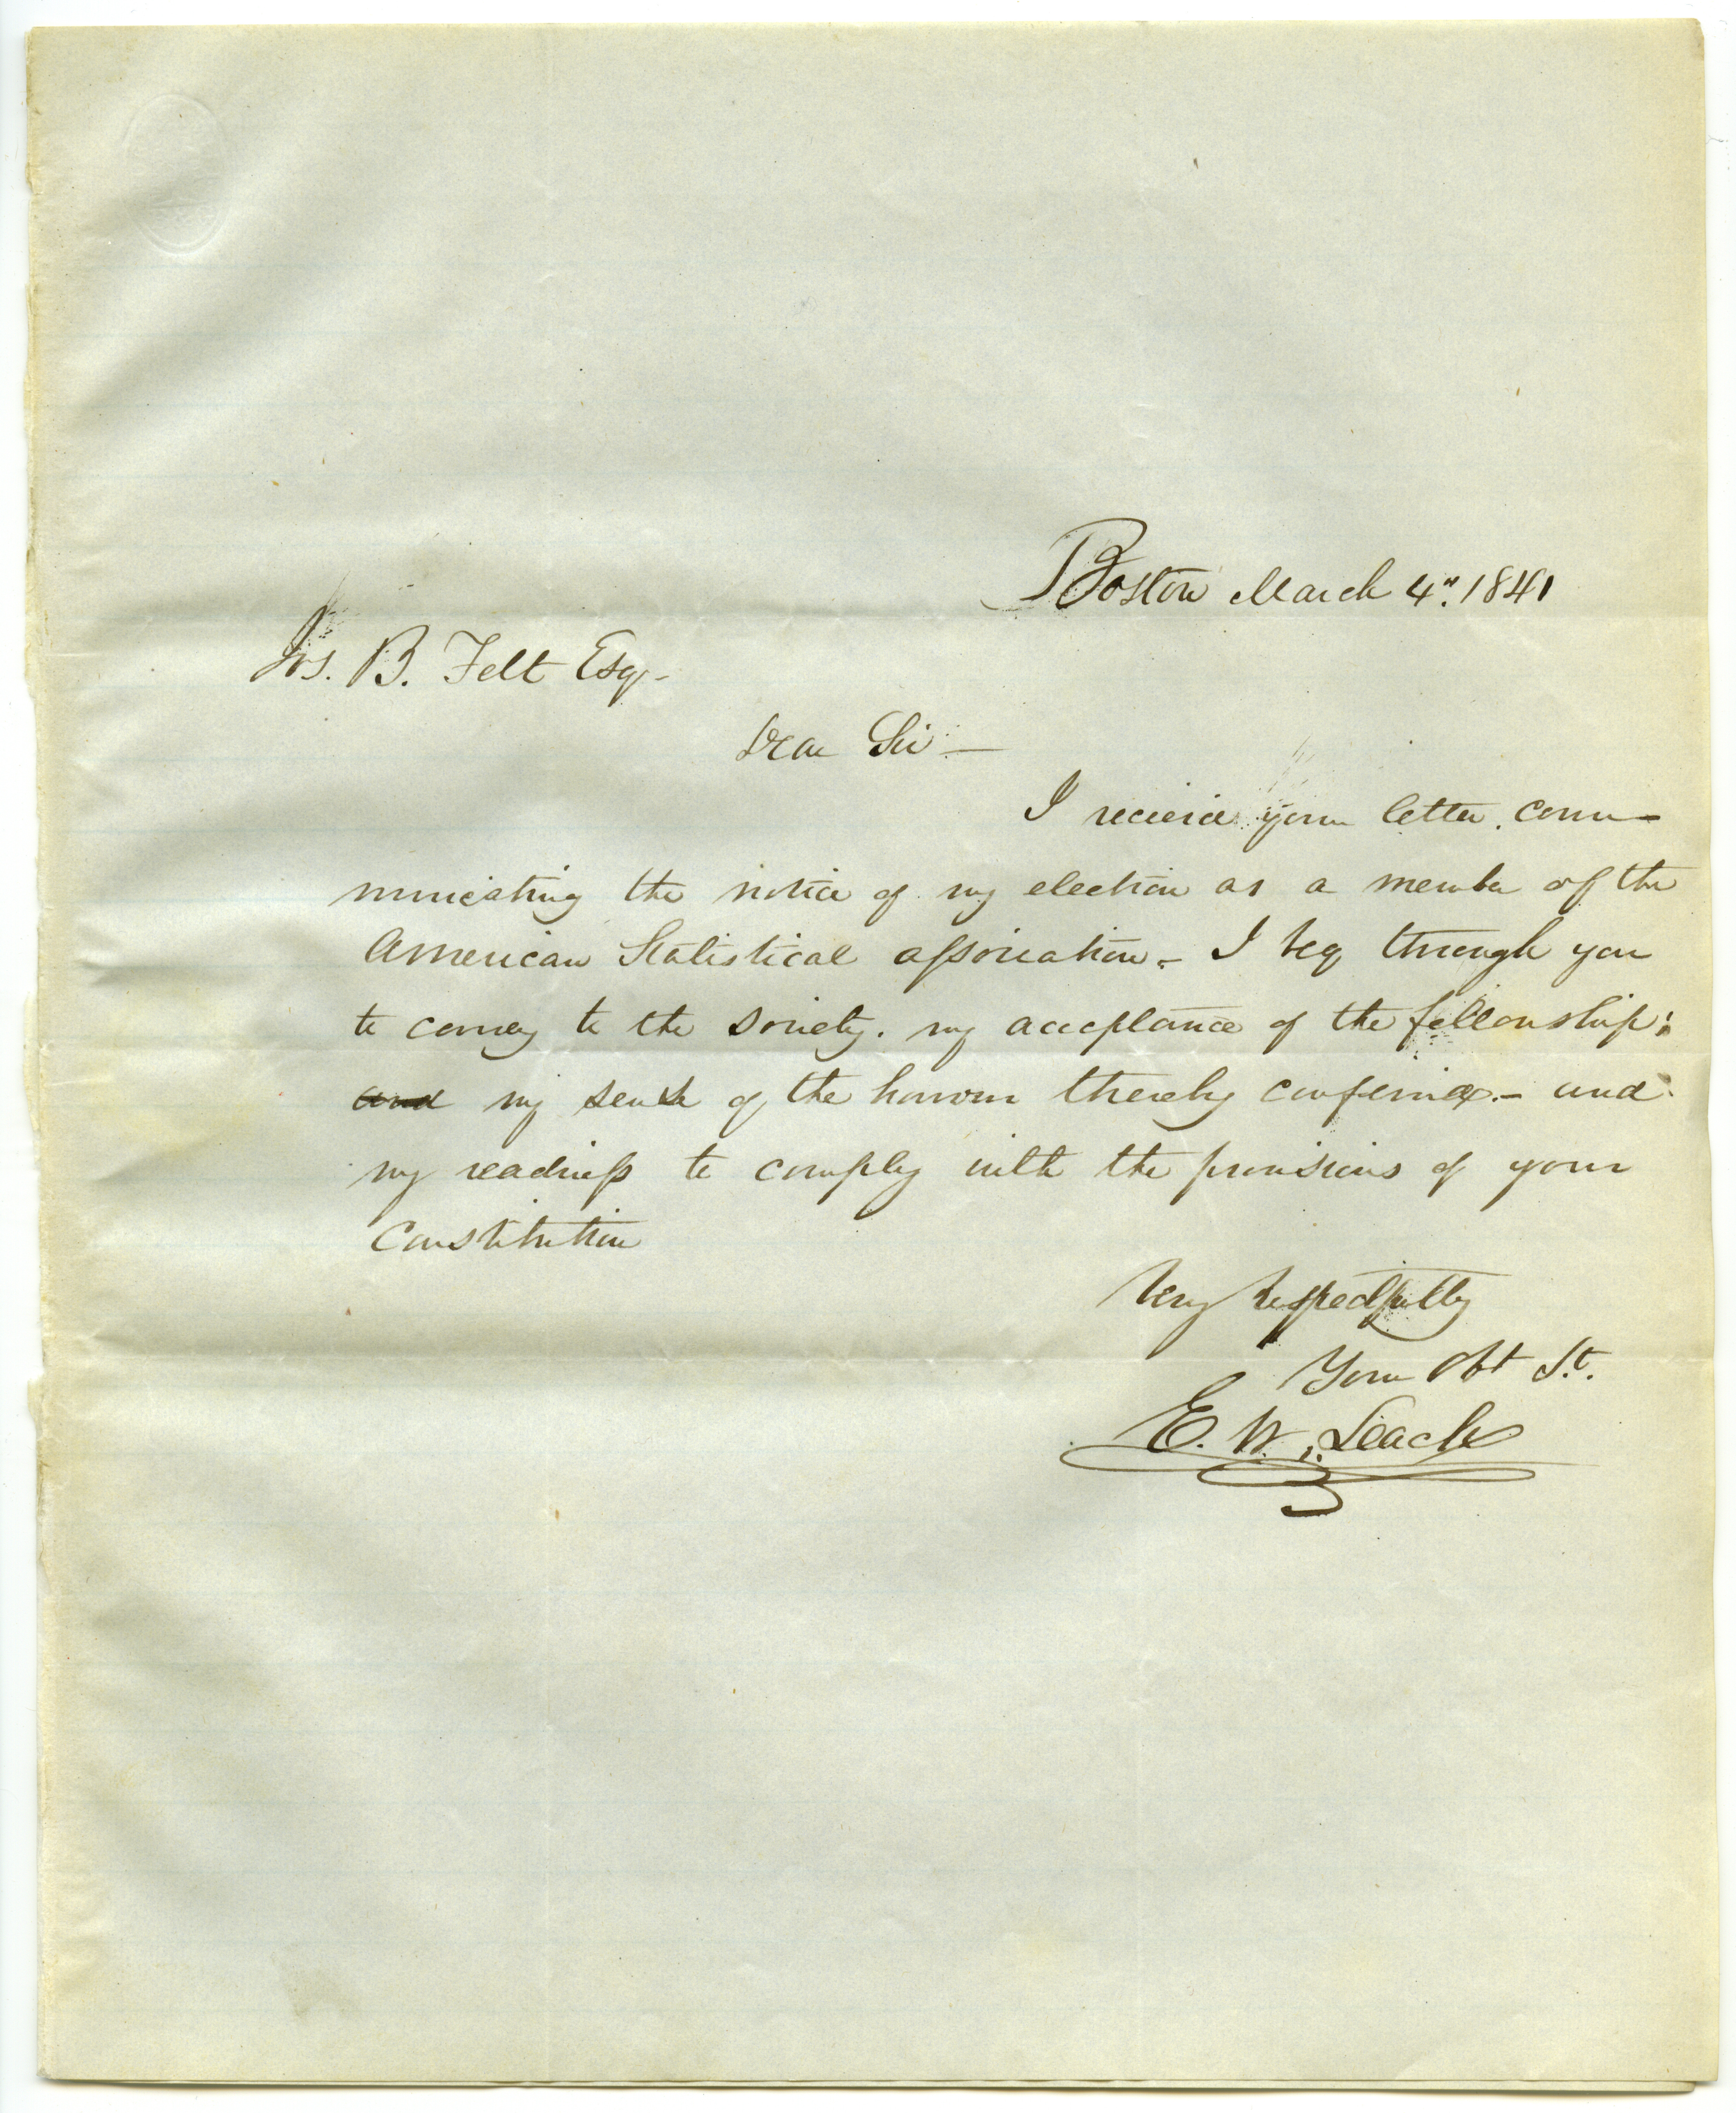 Boston March 4". 1841
Jos. B. Felt Esq-
Dear Sir —
I recieve your letter. com-
municating the notice of my election as a member of the
American Statistical association. - I beg through you
to convey to the Society. my acceptance of the fellowship;
and my sense of the honour thereby conferred. - and
my readiness to comply with the provisions of your
Constitution
Very respectfully
Your Obt St.
E. W. Leach